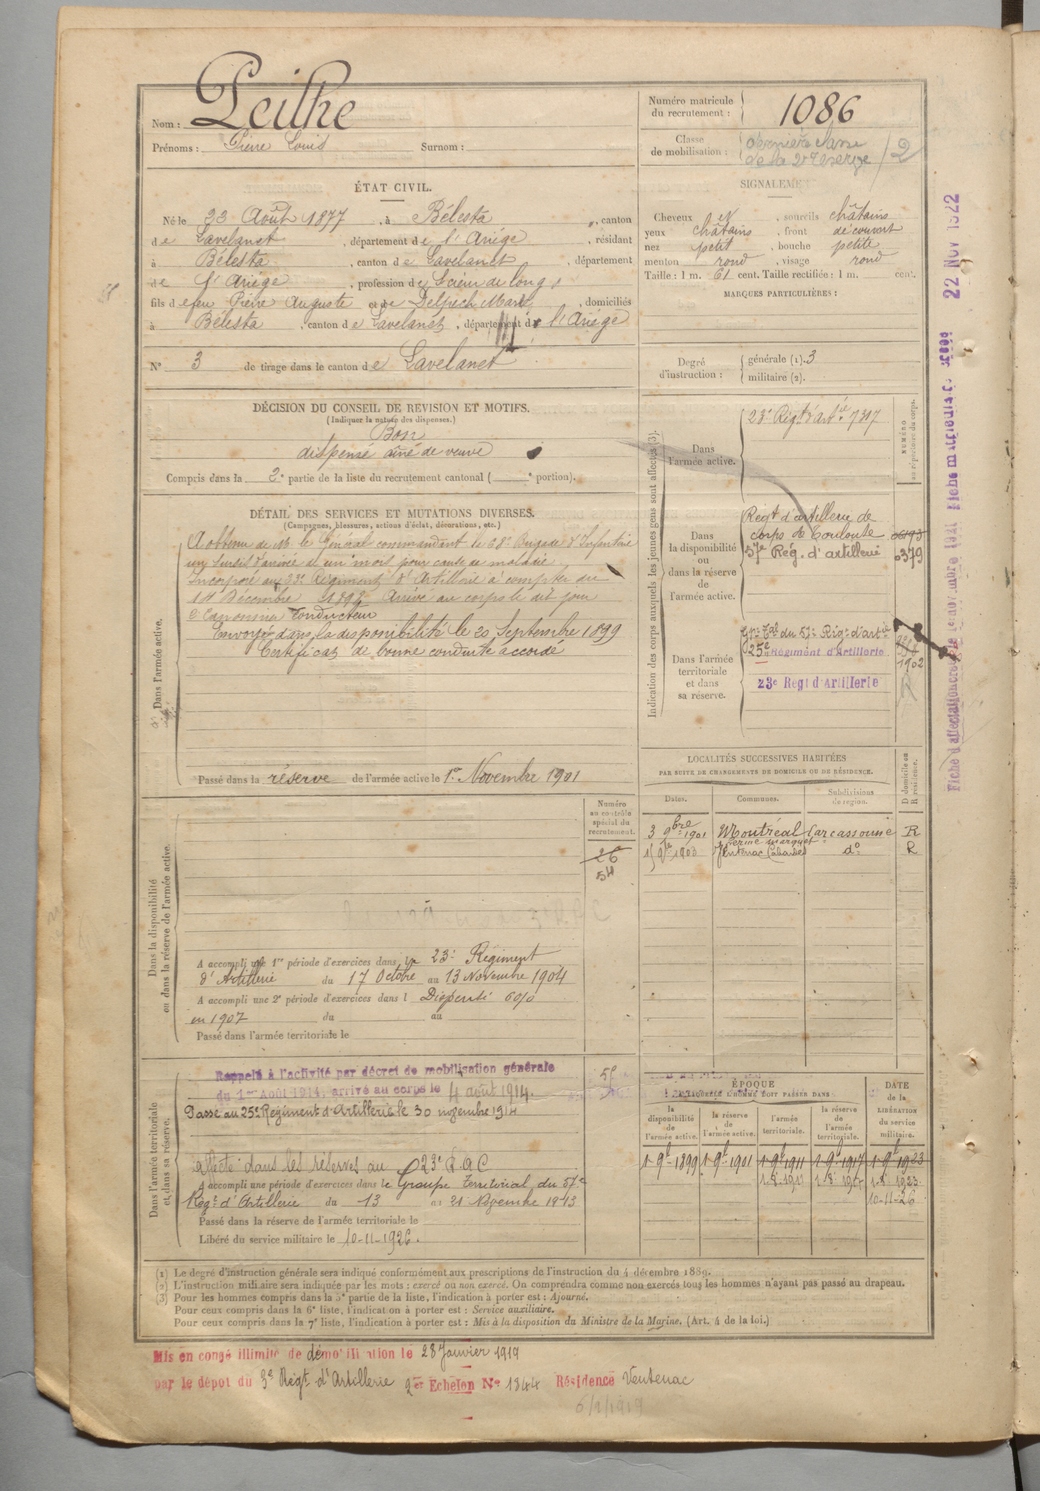 Nom : Peilhe
Prénoms : Pierre Louis Surnom :
Numéro matricule du recrutement : 1086
Classe de mobilisation : dernière classe de la 2e réserve /2
ÉTAT CIVIL.
Né le 23 Août 1877, à Bélesta, canton
de Lavelanet, département de l'Ariège, résidant
à Bélesta, canton de Lavelanet, département
de l'Ariège, profession de Scieur de long,
fils de feu Pierre Auguste et de Delpech Marie, domiciliés
à Bélesta, canton de Lavelanet, département de l'Ariège
N° 3 de tirage dans le canton de Lavelanet
SIGNALEMENT
Cheveux et sourcils châtains
yeux châtains, front découvert
nez petit, bouche petite
menton rond, visage rond
Taille : 1 m. 61 cent. Taille rectifiée : 1 m. cent.
MARQUES PARTICULIÈRES :
Degré d'instruction : générale (1). 3
militaire (2).
DÉCISION DU CONSEIL DE RÉVISION ET MOTIFS.
(Indiquer la nature des dispenses.)
Bon
dispensé aîné de veuve
Compris dans la 2e partie de la liste du recrutement cantonal ( portion).
DÉTAIL DES SERVICES ET MUTATIONS DIVERSES.
(Campagnes, blessures, actions d'éclat, décorations, etc.)
Dans l'armée active.
A obtenu de Mr le Général commandant le 68e Brigade d'Infanterie
un sursis d'arrivée d'un mois pour cause de maladie.
Incorporé au 23e Régiment d'Artillerie à compter du
14 Décembre 1898. Arrivé au corps le dit jour
2e Canonnier Conducteur
Envoyé dans la disponibilité le 20 Septembre 1899
Certificat de bonne conduite accordé
Passé dans la réserve de l'armée active le 1er Novembre 1901
Indication des corps auxquels les jeunes gens sont affectés (3).
NUMÉRO au répertoire du corps.
Dans l'armée active.
23e Régt d'artie 7307
Dans la disponibilité ou dans la réserve de l'armée active.
Regt d'artillerie de
corps de Toulouse
57e Reg. d'artillerie 6379
Dans l'armée territoriale et dans sa réserve.
Gpe Tal du 57e Rég. d'artie
25e Régiment d'Artillerie 1902
23e Régt d'Artillerie
LOCALITÉS SUCCESSIVES HABITÉES
PAR SUITE DE CHANGEMENTS DE DOMICILE OU DE RÉSIDENCE.
Dates. Communes. Subdivisions de région. D domicile ou R résidence.
3 9bre 1901 Montréal Carcassonne R
Ventenac Cabardès do R
Dans la disponibilité ou dans la réserve de l'armée active.
Numéro au contrôle spécial du recrutement.
26
54
A accompli une 1re période d'exercices dans le 23e Régiment
d'Artillerie du 17 Octobre au 13 Novembre 1904
A accompli une 2e période d'exercices dans l Dispensé 60%
en 1907 du au
Passé dans l'armée territoriale le
Dans l'armée territoriale et dans sa réserve.
Rappelé à l'activité par décret de mobilisation générale
du 1er Août 1914, arrivé au corps le 4 août 1914.
Passé au 25e Régiment d'Artillerie le 30 novembre 1914
affecté dans les réserves au 23e R.A.C
A accompli une période d'exercices dans le Groupe Territorial du 57e
Reg. d'Artillerie du 13 au 21 Novembre 1913
Passé dans la réserve de l'armée territoriale le
Libéré du service militaire le 10-11-1926.
ÉPOQUE
À LAQUELLE L'HOMME DOIT PASSER DANS :
la disponibilité de l'armée active. la réserve de l'armée active. l'armée territoriale. la réserve de l'armée territoriale.
DATE de la LIBÉRATION du service militaire.
1-9bre 1899 1-9bre 1901 1-9bre 1911 1-9bre 1917 1-9bre 1923
10-11-26
(1) Le degré d'instruction générale sera indiqué conformément aux prescriptions de l'instruction du 4 décembre 1889.
(2) L'instruction militaire sera indiquée par les mots : exercé ou non exercé. On comprendra comme non exercés tous les hommes n'ayant pas passé au drapeau.
(3) Pour les hommes compris dans la 5e partie de la liste, l'indication à porter est : Ajourné.
Pour ceux compris dans la 6e liste, l'indication à porter est : Service auxiliaire.
Pour ceux compris dans la 7e liste, l'indication à porter est : Mis à la disposition du Ministre de la Marine. (Art. 4 de la loi.)
Mis en congé illimité de démobilisation le 28 Janvier 1919
par le dépot du 3e Régt d'Artillerie 2e Echelon No 1344 Résidence Ventenac
6/1/1919
22 NOV 1922